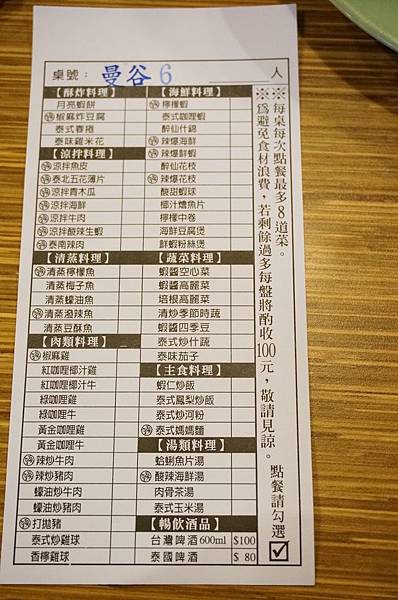 桌號： 曼谷 6 人
【酥炸料理】
月亮蝦餅
椒麻炸豆腐
泰式春捲
泰味雞米花
【涼拌料理】
涼拌魚皮
泰北五花薄片
涼拌青木瓜
涼拌海鮮
涼拌牛肉
涼拌酸辣生蝦
泰南辣肉
【清蒸料理】
清蒸檸檬魚
清蒸梅子魚
清蒸蠔油魚
清蒸潑辣魚
清蒸豆酥魚
【肉類料理】
椒麻雞
紅咖哩椰汁雞
紅咖哩椰汁牛
綠咖哩雞
綠咖哩牛
黃金咖哩雞
黃金咖哩牛
辣炒牛肉
辣炒豬肉
蠔油炒牛肉
蠔油炒豬肉
打拋豬
泰式炒雞球
香檸雞球
【海鮮料理】
檸檬蝦
泰式咖哩蝦
醉仙什錦
辣爆海鮮
辣爆鮮蝦
醉仙花枝
辣爆花枝
酸甜蝦球
椰汁燴魚片
檸檬中卷
海鮮豆腐煲
鮮蝦粉絲煲
【蔬菜料理】
蝦醬空心菜
蝦醬高麗菜
培根高麗菜
清炒季節時蔬
蝦醬四季豆
泰式炒什蔬
泰味茄子
【主食料理】
蝦仁炒飯
泰式鳳梨炒飯
泰式炒河粉
泰式媽媽麵
【湯類料理】
蛤蜊魚片湯
酸辣海鮮湯
肉骨茶湯
泰式玉米湯
【暢飲酒品】
台灣啤酒600ml $100
泰國啤酒 $ 80
※每桌每次點餐最多8道菜。
※為避免食材浪費，若剩餘過多每盤將酌收100元，敬請見諒。點餐請勾選☑